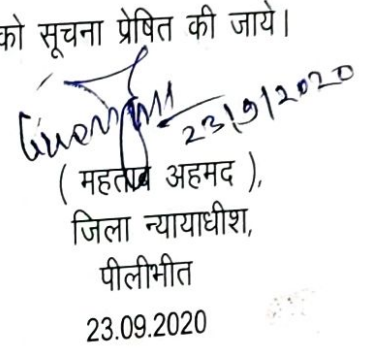 को सूचना प्रेषित की जाये।
23/9/2020
( महताब अहमद ),
जिला न्यायाधीश,
पीलीभीत
23.09.2020